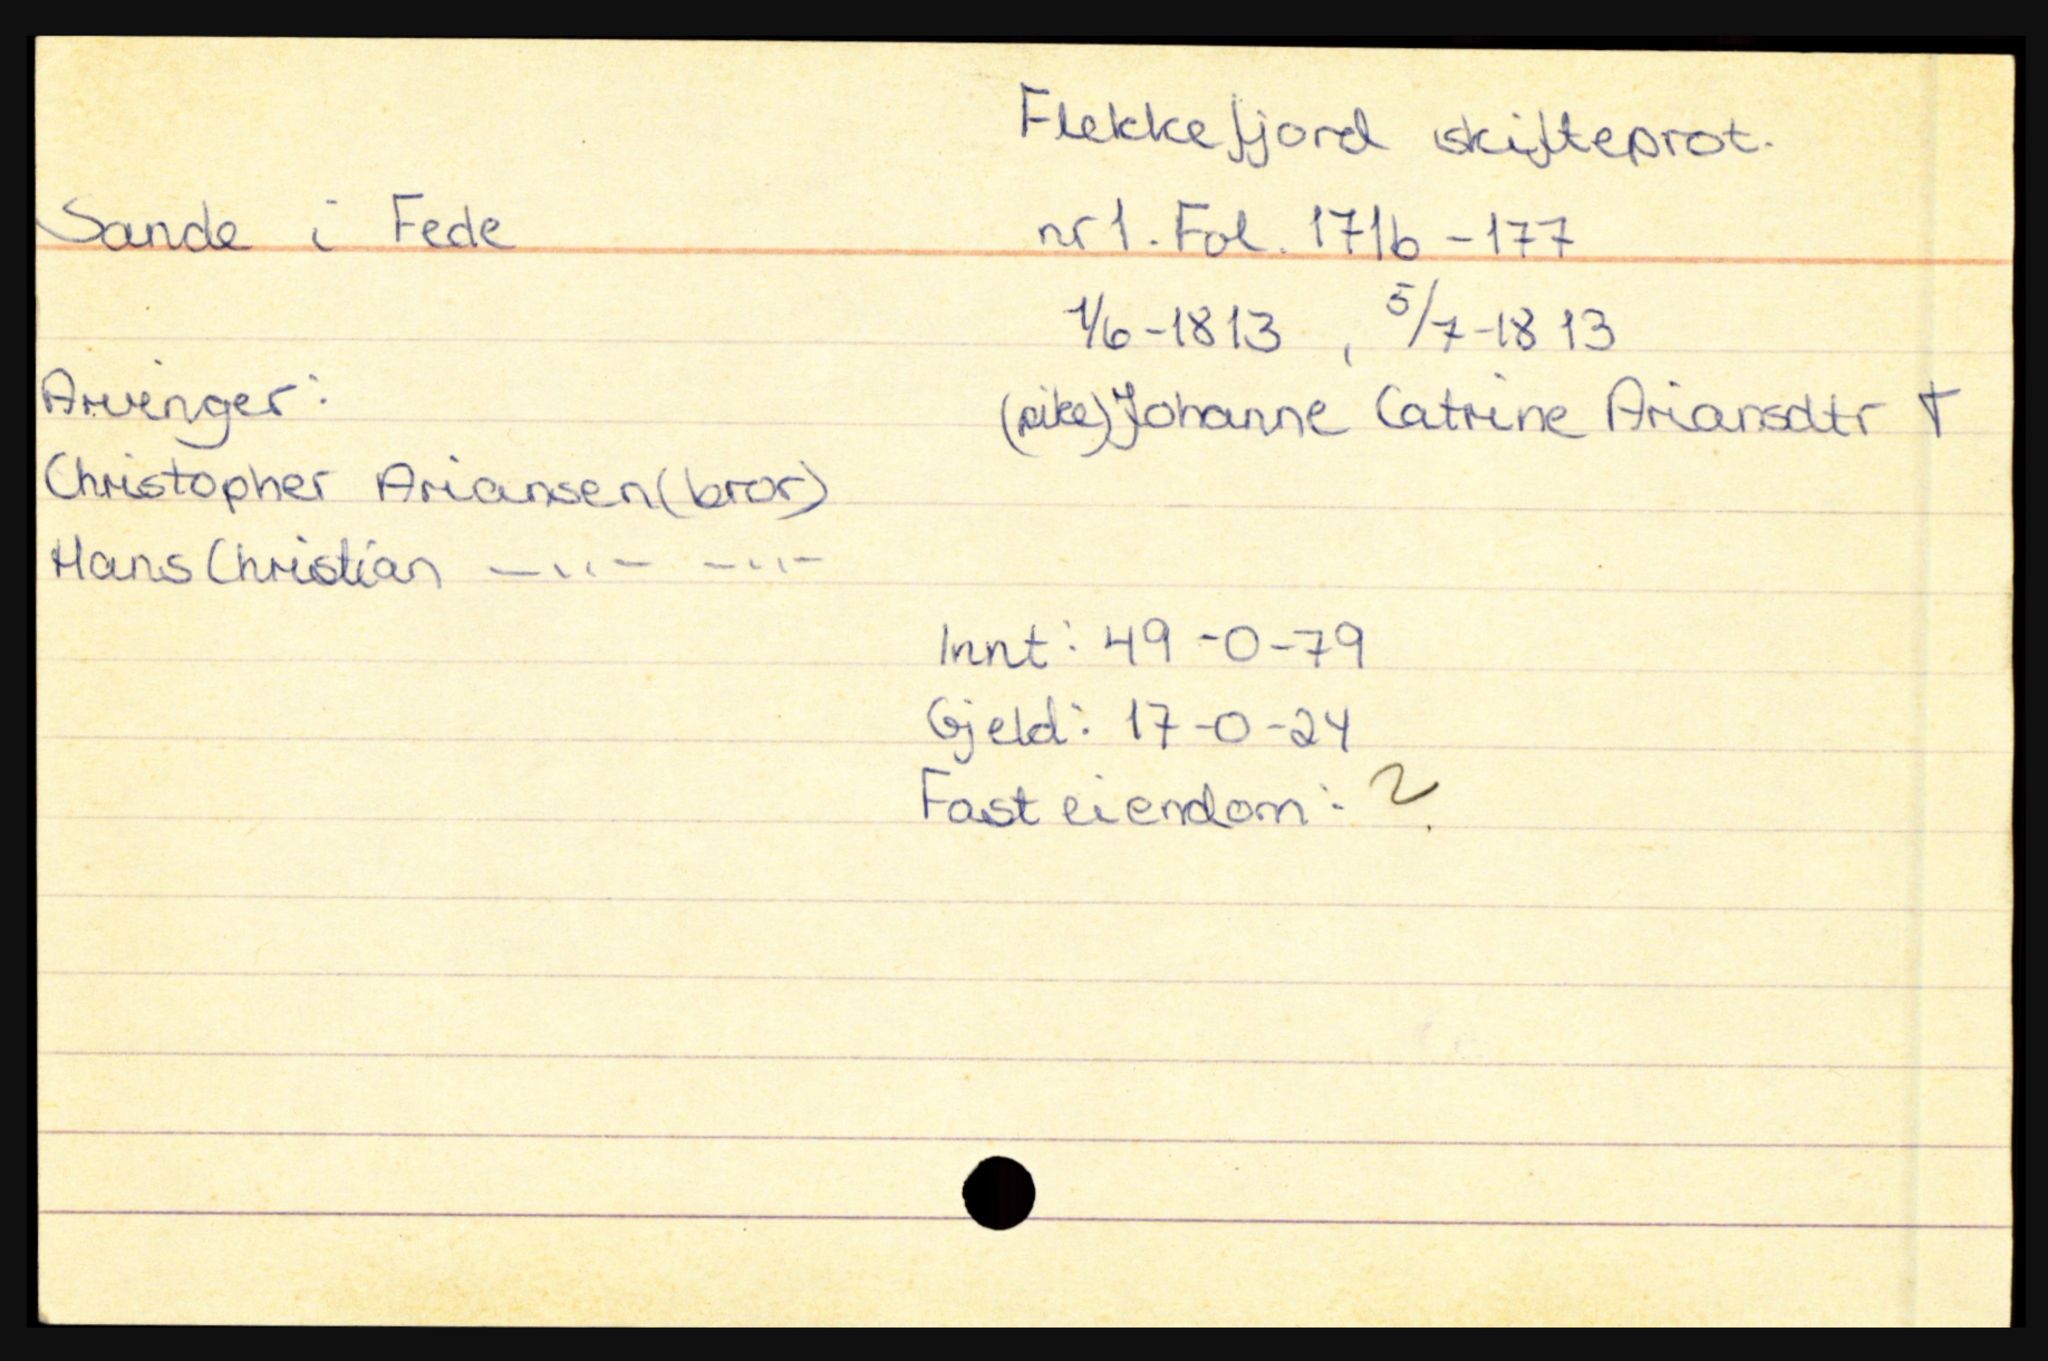 Flekkefjord skifteprot.
Sande i Fede nr 1. Fol. 171b - 177
1/6 - 1813 , 5/7 - 1813
Arvinger: (pike) Johanne Catrine Ariansdtr †
Christopher Ariansen (bror)
Hans Christian —,,— —,,—
Innt: 49 - 0 - 79
Gjeld: 17 - 0 - 24
Fast eiendom: ?